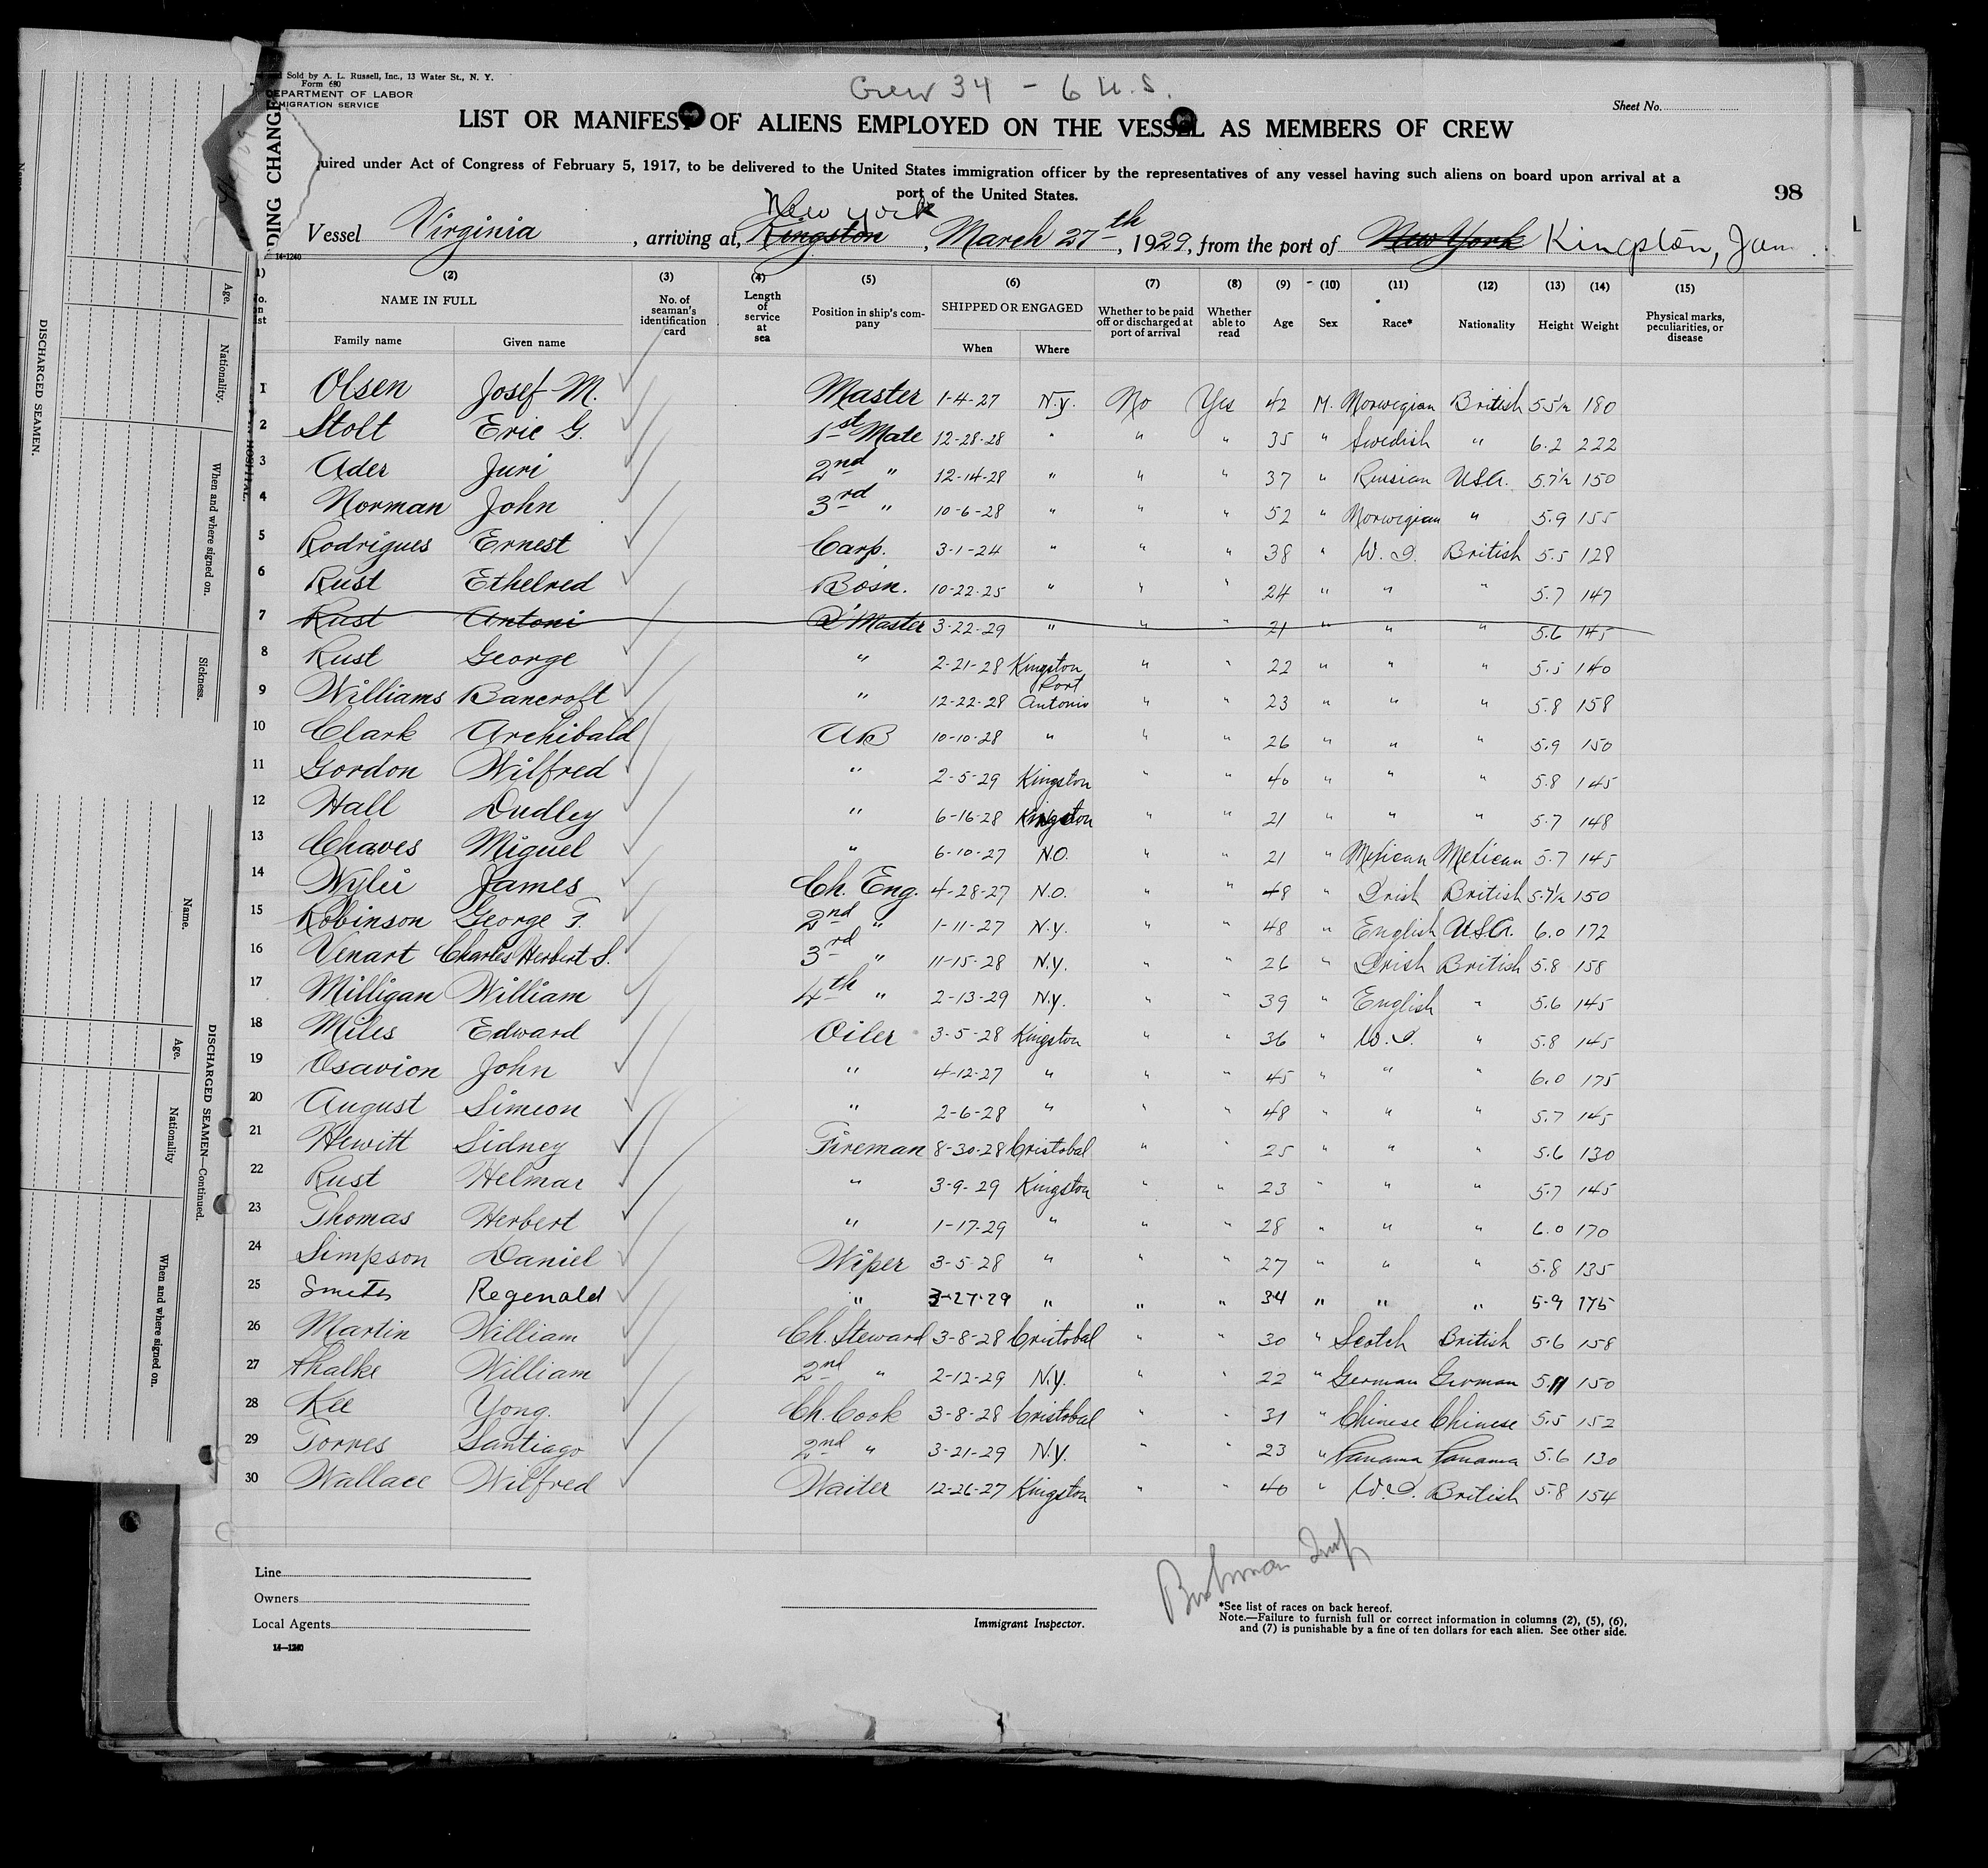 Sold by A. L. Russell, Inc., 13 Water St., N. Y.
Form 680
DEPARTMENT OF LABOR
MIGRATION SERVICE
Crew 34 - 6 U.S.
Sheet No.
LIST OR MANIFEST OF ALIENS EMPLOYED ON THE VESSEL AS MEMBERS OF CREW
quired under Act of Congress of February 5, 1917, to be delivered to the United States immigration officer by the representatives of any vessel having such aliens on board upon arrival at a
port of the United States.
98
New York
Vessel Virginia, arriving at, Kingston, March 27th, 1929, from the port of New York Kingston, Jam.
14-1240
(1) (2) (3) (4) (5) (6) (7) (8) (9) (10) (11) (12) (13) (14) (15)
NAME IN FULL No. of seaman's identification card Length of service at sea Position in ship's company SHIPPED OR ENGAGED Whether to be paid off or discharged at port of arrival Whether able to read Age Sex Race* Nationality Height Weight Physical marks, peculiarities, or disease
Family name Given name When Where
1 Olsen Josef M. Master 1-4-27 N.Y. No Yes 42 M. Norwegian British 5 5½ 180
2 Stolt Eric G. 1st Mate 12-28-28 " " " 35 " Swedish " 6.2 222
3 Ader Juri 2nd " 12-14-28 " " " 37 " Russian USA. 5.7½ 150
4 Norman John 3rd " 10-6-28 " " " 52 " Norwegian " 5.9 155
5 Rodrigues Ernest Carp. 3-1-24 " " " 38 " W. I. British 5.5 128
6 Rust Ethelred Bosn. 10-22-25 " " " 24 " " " 5.7 147
7 Rust Antoni Q'Master 3-22-29 " " " 21 " " " 5.6 145
8 Rust George " 2-21-28 Kingston " " 22 " " " 5.5 140
9 Williams Bancroft " 12-22-28 Port Antonio " " 23 " " " 5.8 158
10 Clark Archibald AB 10-10-28 " " " 26 " " " 5.9 150
11 Gordon Wilfred " 2-5-29 Kingston " " 40 " " " 5.8 145
12 Hall Dudley " 6-16-28 Kingston " " 21 " " " 5.7 148
13 Chaves Miguel " 6-10-27 N.O. " " 21 " Mexican Mexican 5.7 145
14 Wylie James Ch. Eng. 4-28-27 N.O. " " 48 " Irish British 5.7½ 150
15 Robinson George F. 2nd " 1-11-27 N.Y. " " 48 " English USA. 6.0 172
16 Venart Charles Herbert S. 3rd " 11-15-28 N.Y. " " 26 " Irish British 5.8 158
17 Milligan William 4th " 2-13-29 N.Y. " " 39 " English " 5.6 145
18 Miles Edward Oiler 3-5-28 Kingston " " 36 " W. I. " 5.8 145
19 Osavion John " 4-12-27 " " " 45 " " " 6.0 175
20 August Simeon " 2-6-28 " " " 48 " " " 5.7 145
21 Hewitt Sidney Fireman 8-30-28 Cristobal " " 25 " " " 5.6 130
22 Rust Helmar " 3-9-29 Kingston " " 23 " " " 5.7 145
23 Thomas Herbert " 1-17-29 " " " 28 " " " 6.0 170
24 Simpson Daniel Wiper 3-5-28 " " " 27 " " " 5.8 135
25 Smith Regenald " 3-27-29 " " " 34 " " " 5.9 175
26 Martin William Ch. Steward 3-8-28 Cristobal " " 30 " Scotch British 5.6 158
27 Thalke William 2nd " 2-12-29 N.Y. " " 22 " German German 5.11 150
28 Kee Yong. Ch. Cook 3-8-28 Cristobal " " 31 " Chinese Chinese 5.5 152
29 Torres Santiago 2nd " 3-21-29 N.Y. " " 23 " Panama Panama 5.6 130
30 Wallace Wilfred Waiter 12-26-27 Kingston " " 40 " W. I. British 5.8 154
Line
Owners
Local Agents
14—1240
Immigrant Inspector.
*See list of races on back hereof.
Note.—Failure to furnish full or correct information in columns (2), (5), (6),
and (7) is punishable by a fine of ten dollars for each alien. See other side.
DING CHANGE
HOSPITAL.
DISCHARGED SEAMEN.
Age.
Nationality.
When and where signed on.
Sickness.
DISCHARGED SEAMEN—Continued.
Name.
Age.
Nationality
When and where signed on.